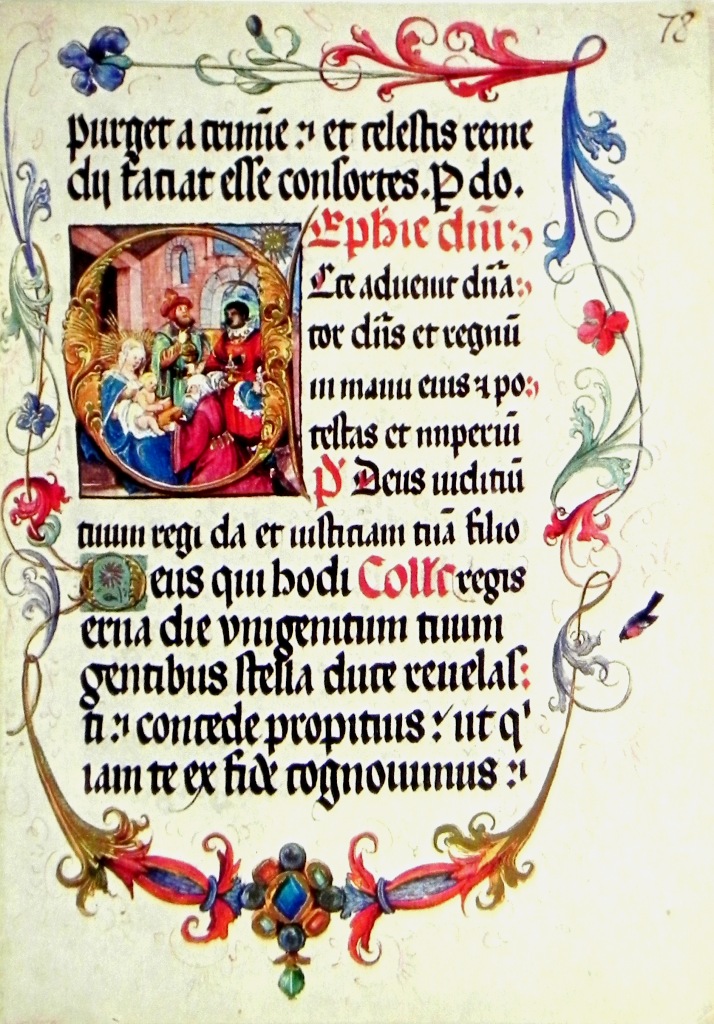 78
purget a crimīe : et celestis reme
dij faciat esse consortes. P do.
Ephie dm̄:
Ecce aduenit dn̄a:
tor dn̄s et regnū
in manu eius & po:
testas et imperiū
P' Deus iudiciū
tuum regi da et iusticiam tuā filio
Deus qui hodi Coll'c regis
erna die vnigenitum tuum
gentibus stella duce reuelas:
ti : concede propitius : ut q'
iam te ex fide cognouimus :